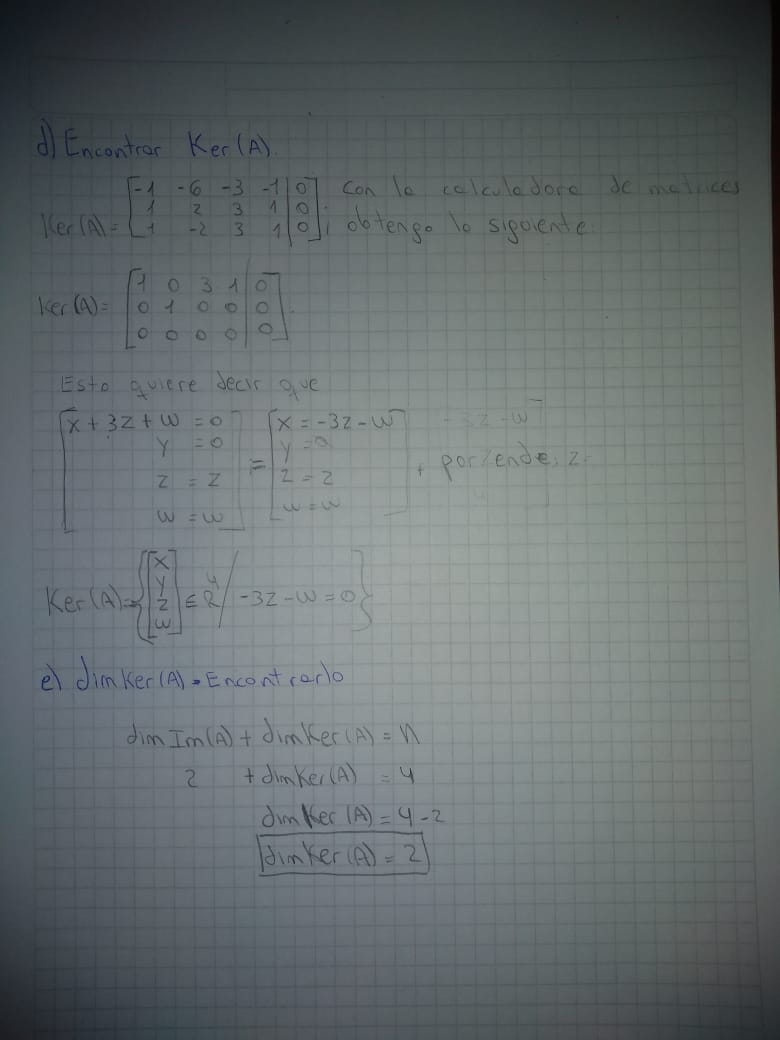 d) Encontrar Ker(A).
Ker(A)= [-1 -6 -3 -1 | 0] con la calculadora de matrices
[1 2 3 1 | 0] ; obtengo lo siguiente.
[1 -2 3 1 | 0]
Ker(A)= [1 0 3 1 | 0]
[0 1 0 0 | 0]
[0 0 0 0 | 0]
Esto quiere decir que
[x + 3z + w = 0] = [x = -3z - w] -3z - w]
[y = 0] [y = 0]
[z = z] [z = z] , por ende, z=
[w = w] [w = w]
Ker(A)= {[x y z w] ∈ R⁴ / -3z - w = 0}
e) dimKer(A). Encontrarlo
dim Im(A) + dimKer(A) = n
2 + dimKer(A) = 4
dimKer(A) = 4 - 2
dimKer(A) = 2